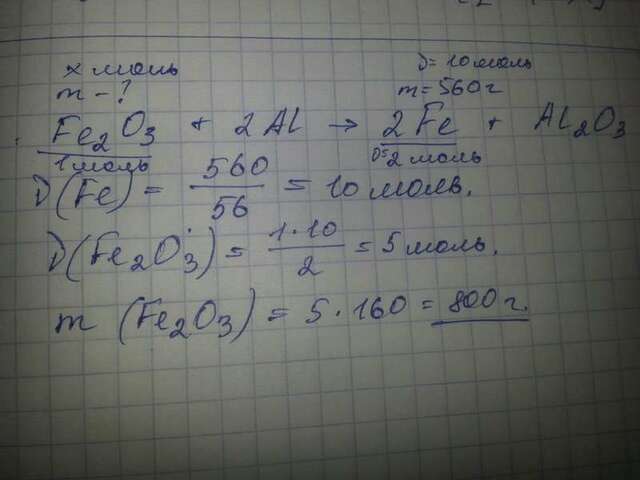 x моль
m - ?
ν = 10 моль
m = 560 г
Fe₂O₃ + 2Al → 2Fe + Al₂O₃
1 моль
ν = 2 моль
ν(Fe) = 560/56 = 10 моль.
ν(Fe₂O₃) = 1·10/2 = 5 моль.
m (Fe₂O₃) = 5·160 = 800 г.